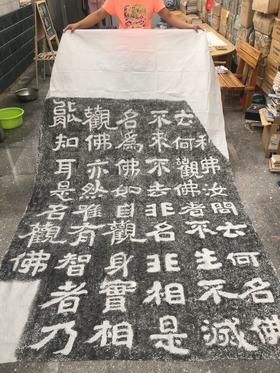 利佛汝問云何名佛
云何觀佛者不生不滅
不來不去非名非相是
名為佛如自觀身實相
觀佛亦然唯有智者乃
能知耳是名觀佛